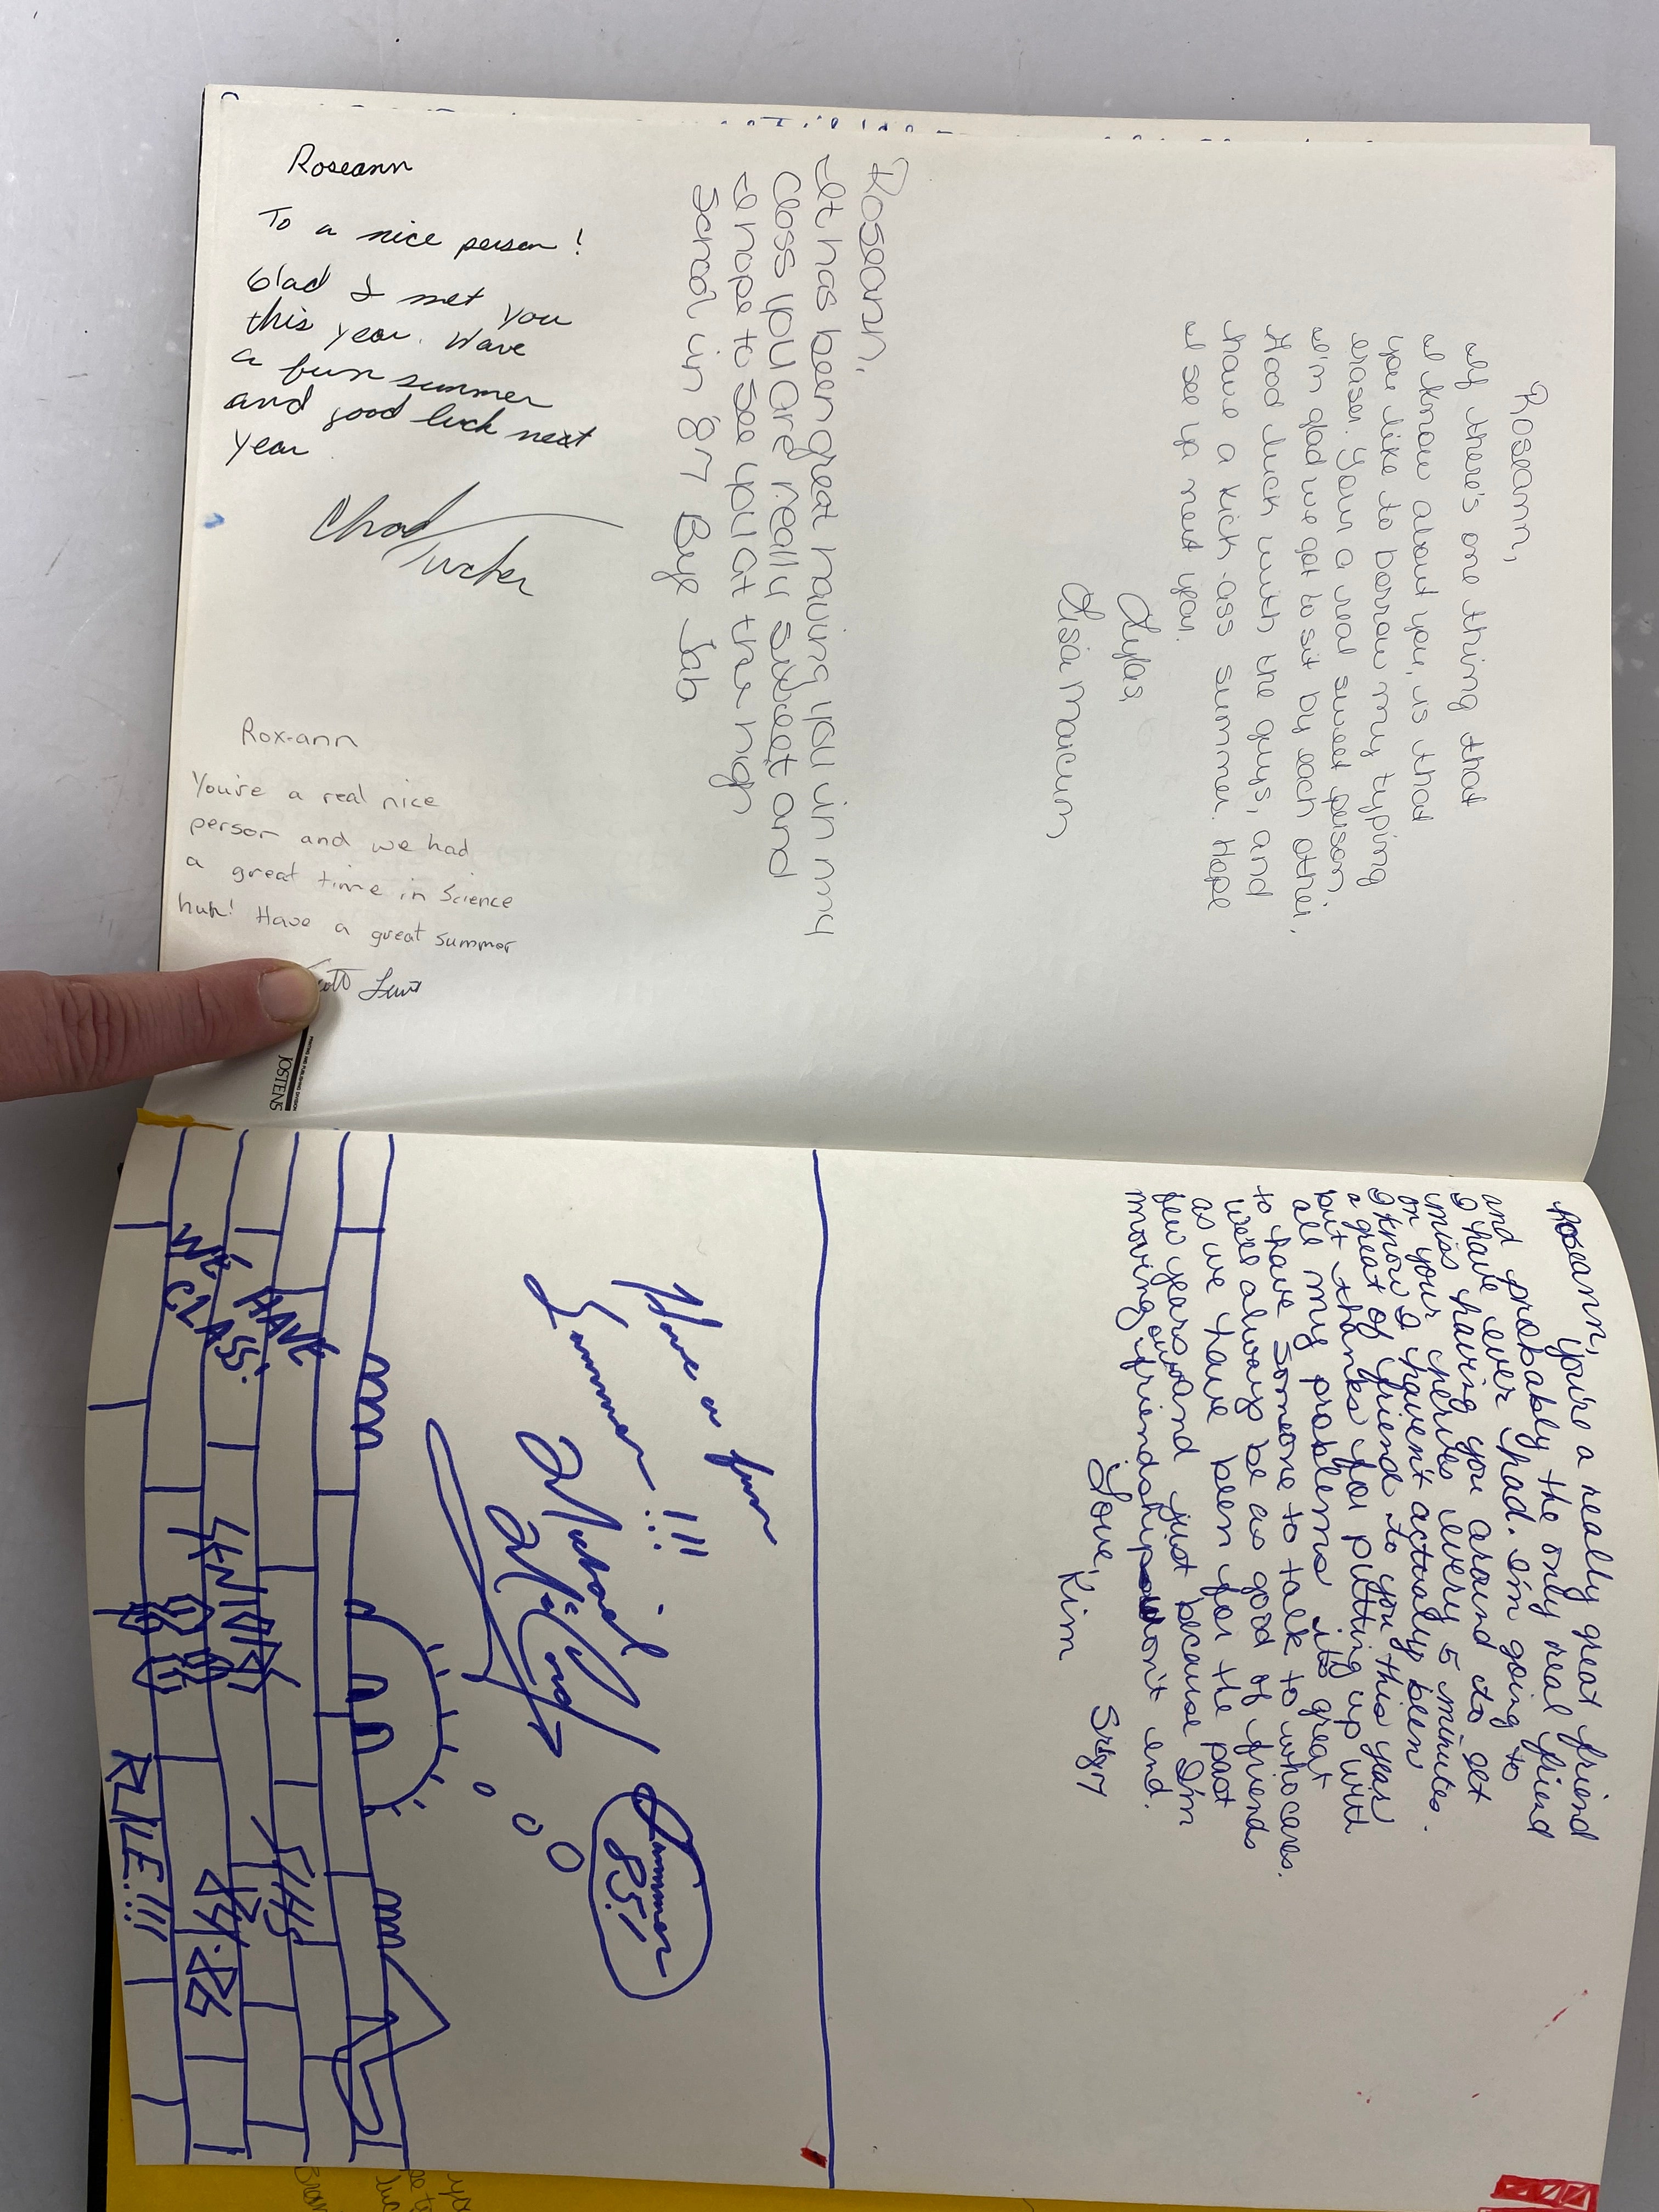 Roseann,
If there's one thing that
I know about you, is that
you like to borrow my typing
eraser. Your a real sweet person,
I'm glad we got to sit by each other.
Good luck with the guys, and
have a kick ass summer. Hope
I see ya next year.
Lylas,
Lisa
Roseann,
It has been great having you in my
class you are really sweet and
I hope to see you at the high
School in 87 Bye Jab
Roseann
To a nice person!
Glad I met you
this year. Have
a fun summer
and good luck next
year
Chad Tucker
Rox-ann
You're a real nice
person and we had
a great time in Science
huh! Have a great summer
JOSTENS
PRINTING AND PUBLISHING DIVISION
Roseann,
You're a really great friend
and probably the only real friend
I have ever had. I'm going to
miss having you around to get
on your nerves every 5 minutes.
I know I haven't actually been
a great of friend to you this year
but thanks for putting up with
all my problems its great
to have someone to talk to who cares.
We'll always be as good of friends
as we have been for the past
few years and just because I'm
moving friendship won't end.
Love, Kim
Sr 87
Have a fun
Summer!!!
Michael
Summer
85!
WE HAVE
CLASS!
SENIORS
86
SHS
RULE!!!